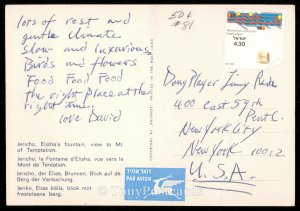 lots of rest and
gentle climate
slow and luxurious
Birds and flowers
Food Food Food
the right place at the
right time.
love David
Jericho. Elisha's fountain, view to Mt.
of Temptation.
Jericho, la Fontaine d'Elisha, vue vers le
Mont de Tentation.
Jericho, der Elias, Brunnen, Blick auf de
Berg der Versuchung.
Jeriko, Elisa källa, blick mot
frestelsens berg.
50¢
#81
4.30
400 east 59th
New York City
New York 10012
U.S.A.
דואר אויר
PAR AVION
TonyPostcards